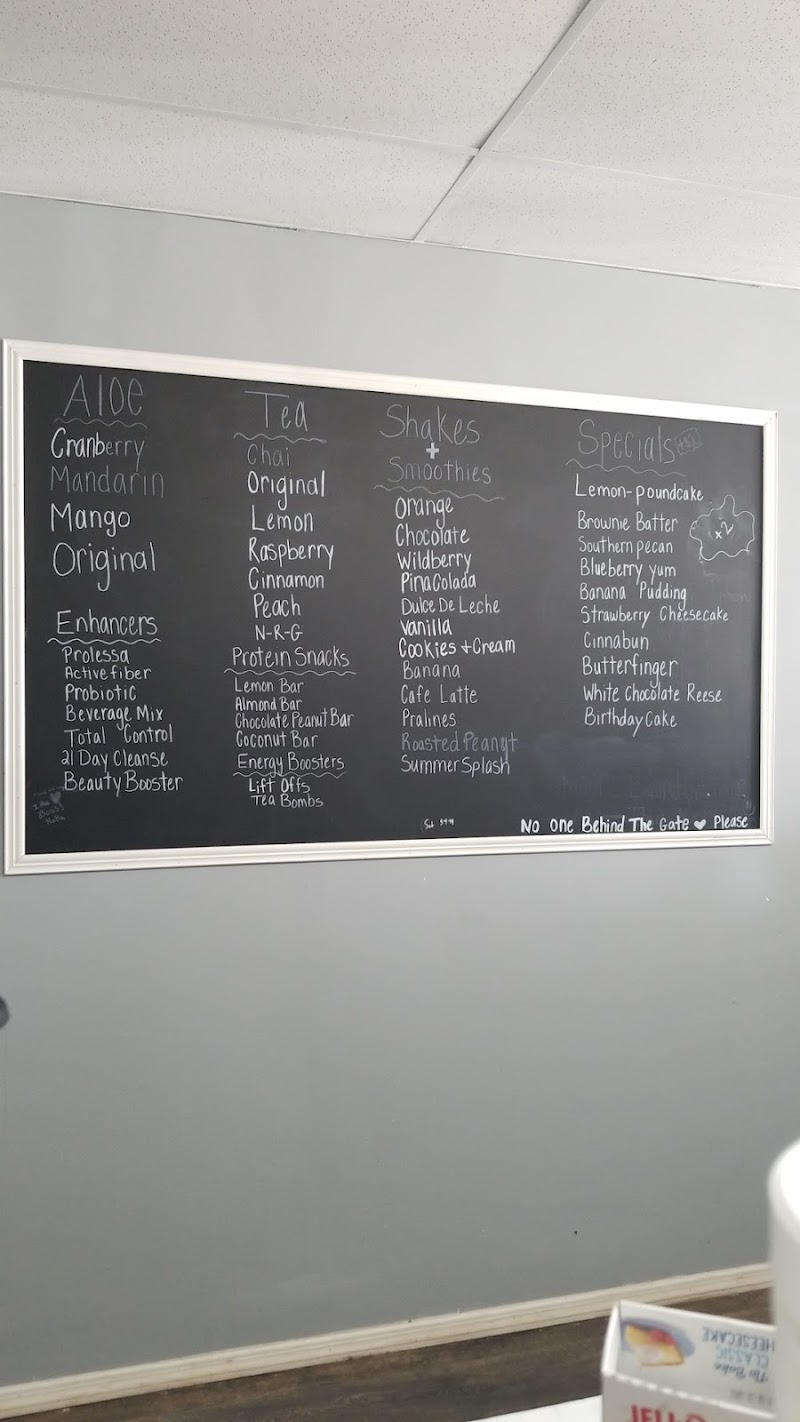 Aloe
Cranberry
Mandarin
Mango
Original
Enhancers
Prolessa
Active fiber
Probiotic
Beverage Mix
Total Control
21 Day Cleanse
Beauty Booster
Tea
Chai
Original
Lemon
Raspberry
Cinnamon
Peach
N-R-G
Protein Snacks
Lemon Bar
Almond Bar
Chocolate Peanut Bar
Coconut Bar
Energy Boosters
Lift Offs
Tea Bombs
Shakes
+
Smoothies
Orange
Chocolate
Wildberry
Pina Colada
Dulce De Leche
Vanilla
Cookies + Cream
Banana
Cafe Latte
Pralines
Roasted Peanyt
Summer Splash
Specials
Lemon-poundcake
Brownie Batter
x2
Southern pecan
Blueberry yum
Banana Pudding
Strawberry Cheesecake
Cinnabun
Butterfinger
White Chocolate Reese
Birthday Cake
No One Behind The Gate ♥ Please
No Bake
CLASSIC
CHEESECAKE
JELL-O